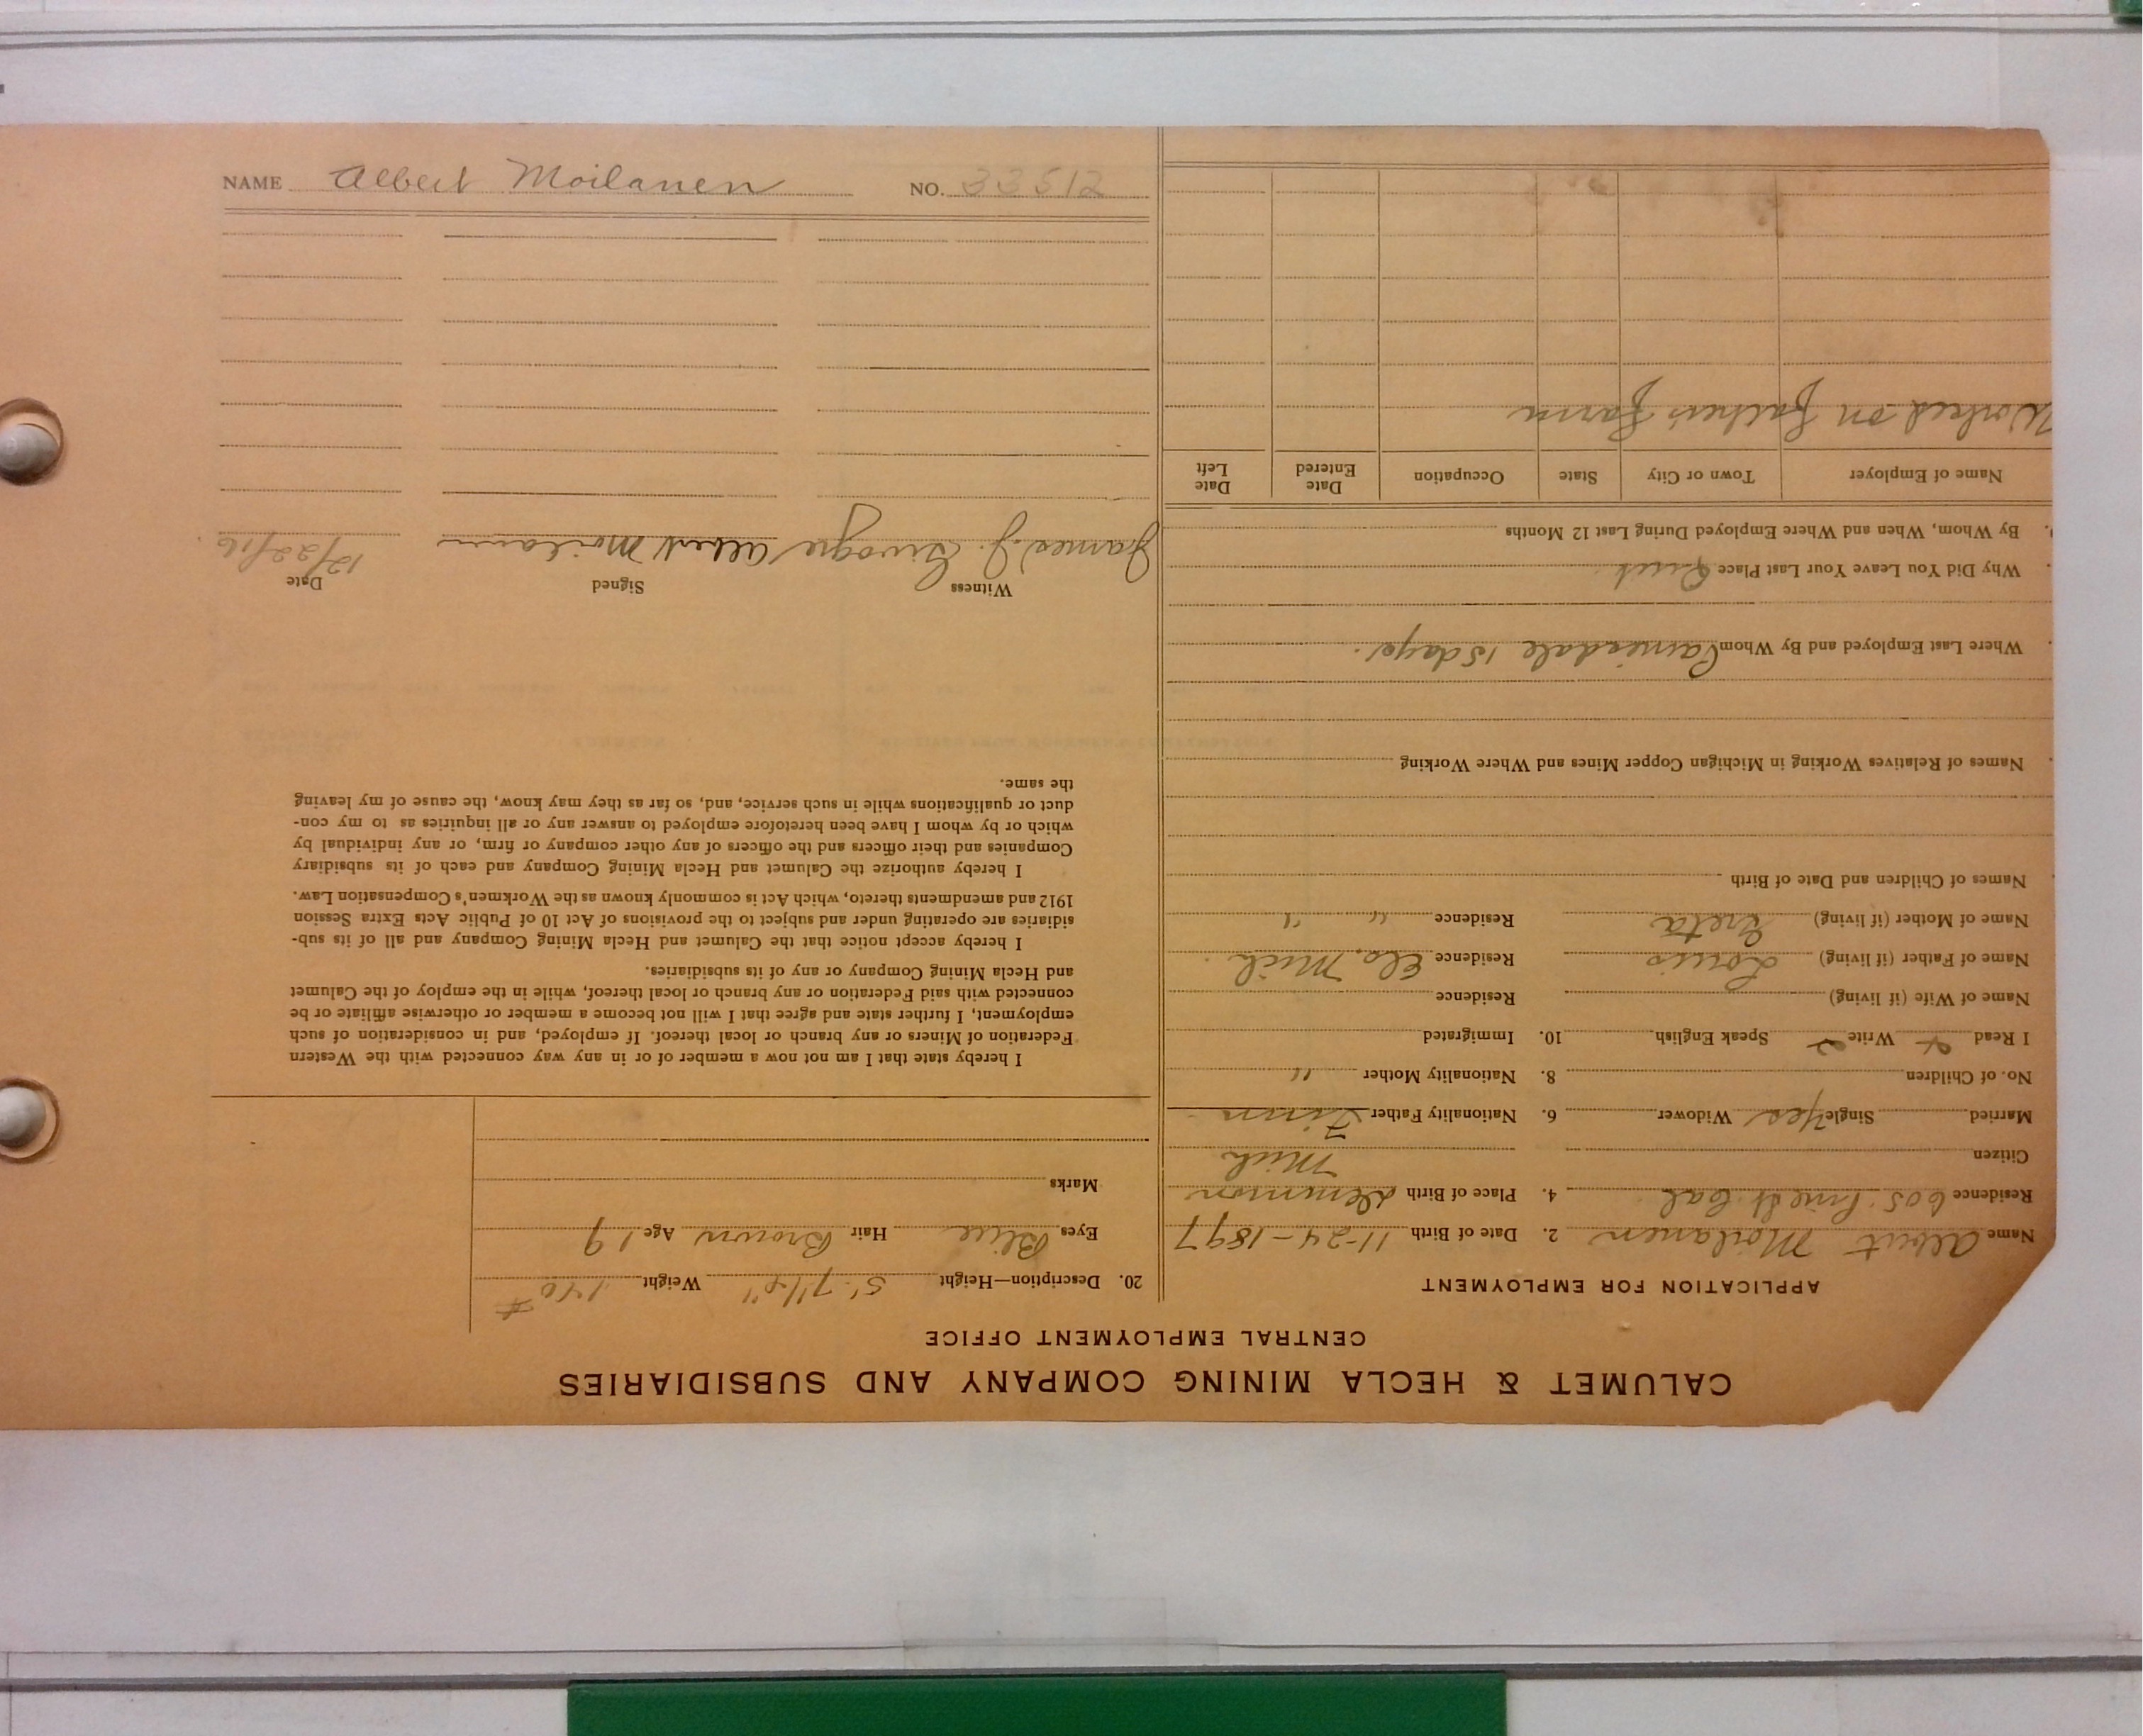 CALUMET & HECLA MINING COMPANY AND SUBSIDIARIES
CENTRAL EMPLOYMENT OFFICE
APPLICATION FOR EMPLOYMENT
Name Albert Moilanen 2. Date of Birth 11-24-1897
Residence 605 Pine St Cal 4. Place of Birth
Mich
Citizen
Married Single Yes Widower 6. Nationality Father Finn
No. of Children 8. Nationality Mother "
I Read Write Speak English 10. Immigrated
Name of Wife (if living) Residence
Name of Father (if living) Louis Residence Elo. Mich.
Name of Mother (if living) Greta Residence " "
Names of Children and Date of Birth
Names of Relatives Working in Michigan Copper Mines and Where Working
Where Last Employed and By Whom 15 days.
Why Did You Leave Your Last Place Quit
By Whom, When and Where Employed During Last 12 Months
Name of Employer Town or City State Occupation Date Entered Date Left
Worked on father's farm
20. Description—Height 5' 7 1/2" Weight 140 #
Eyes Blue Hair Brown Age 19
Marks
I hereby state that I am not now a member of or in any way connected with the Western
Federation of Miners or any branch or local thereof. If employed, and in consideration of such
employment, I further state and agree that I will not become a member or otherwise affiliate or be
connected with said Federation or any branch or local thereof, while in the employ of the Calumet
and Hecla Mining Company or any of its subsidiaries.
I hereby accept notice that the Calumet and Hecla Mining Company and all of its sub-
sidiaries are operating under and subject to the provisions of Act 10 of Public Acts Extra Session
1912 and amendments thereto, which Act is commonly known as the Workmen's Compensation Law.
I hereby authorize the Calumet and Hecla Mining Company and each of its subsidiary
Companies and their officers and the officers of any other company or firm, or any individual by
which or by whom I have been heretofore employed to answer any or all inquiries as to my con-
duct or qualifications while in such service, and, so far as they may know, the cause of my leaving
the same.
Witness Signed Date
James J. Albert Moilanen 12/22/16
NAME Albert Moilanen NO. 33512